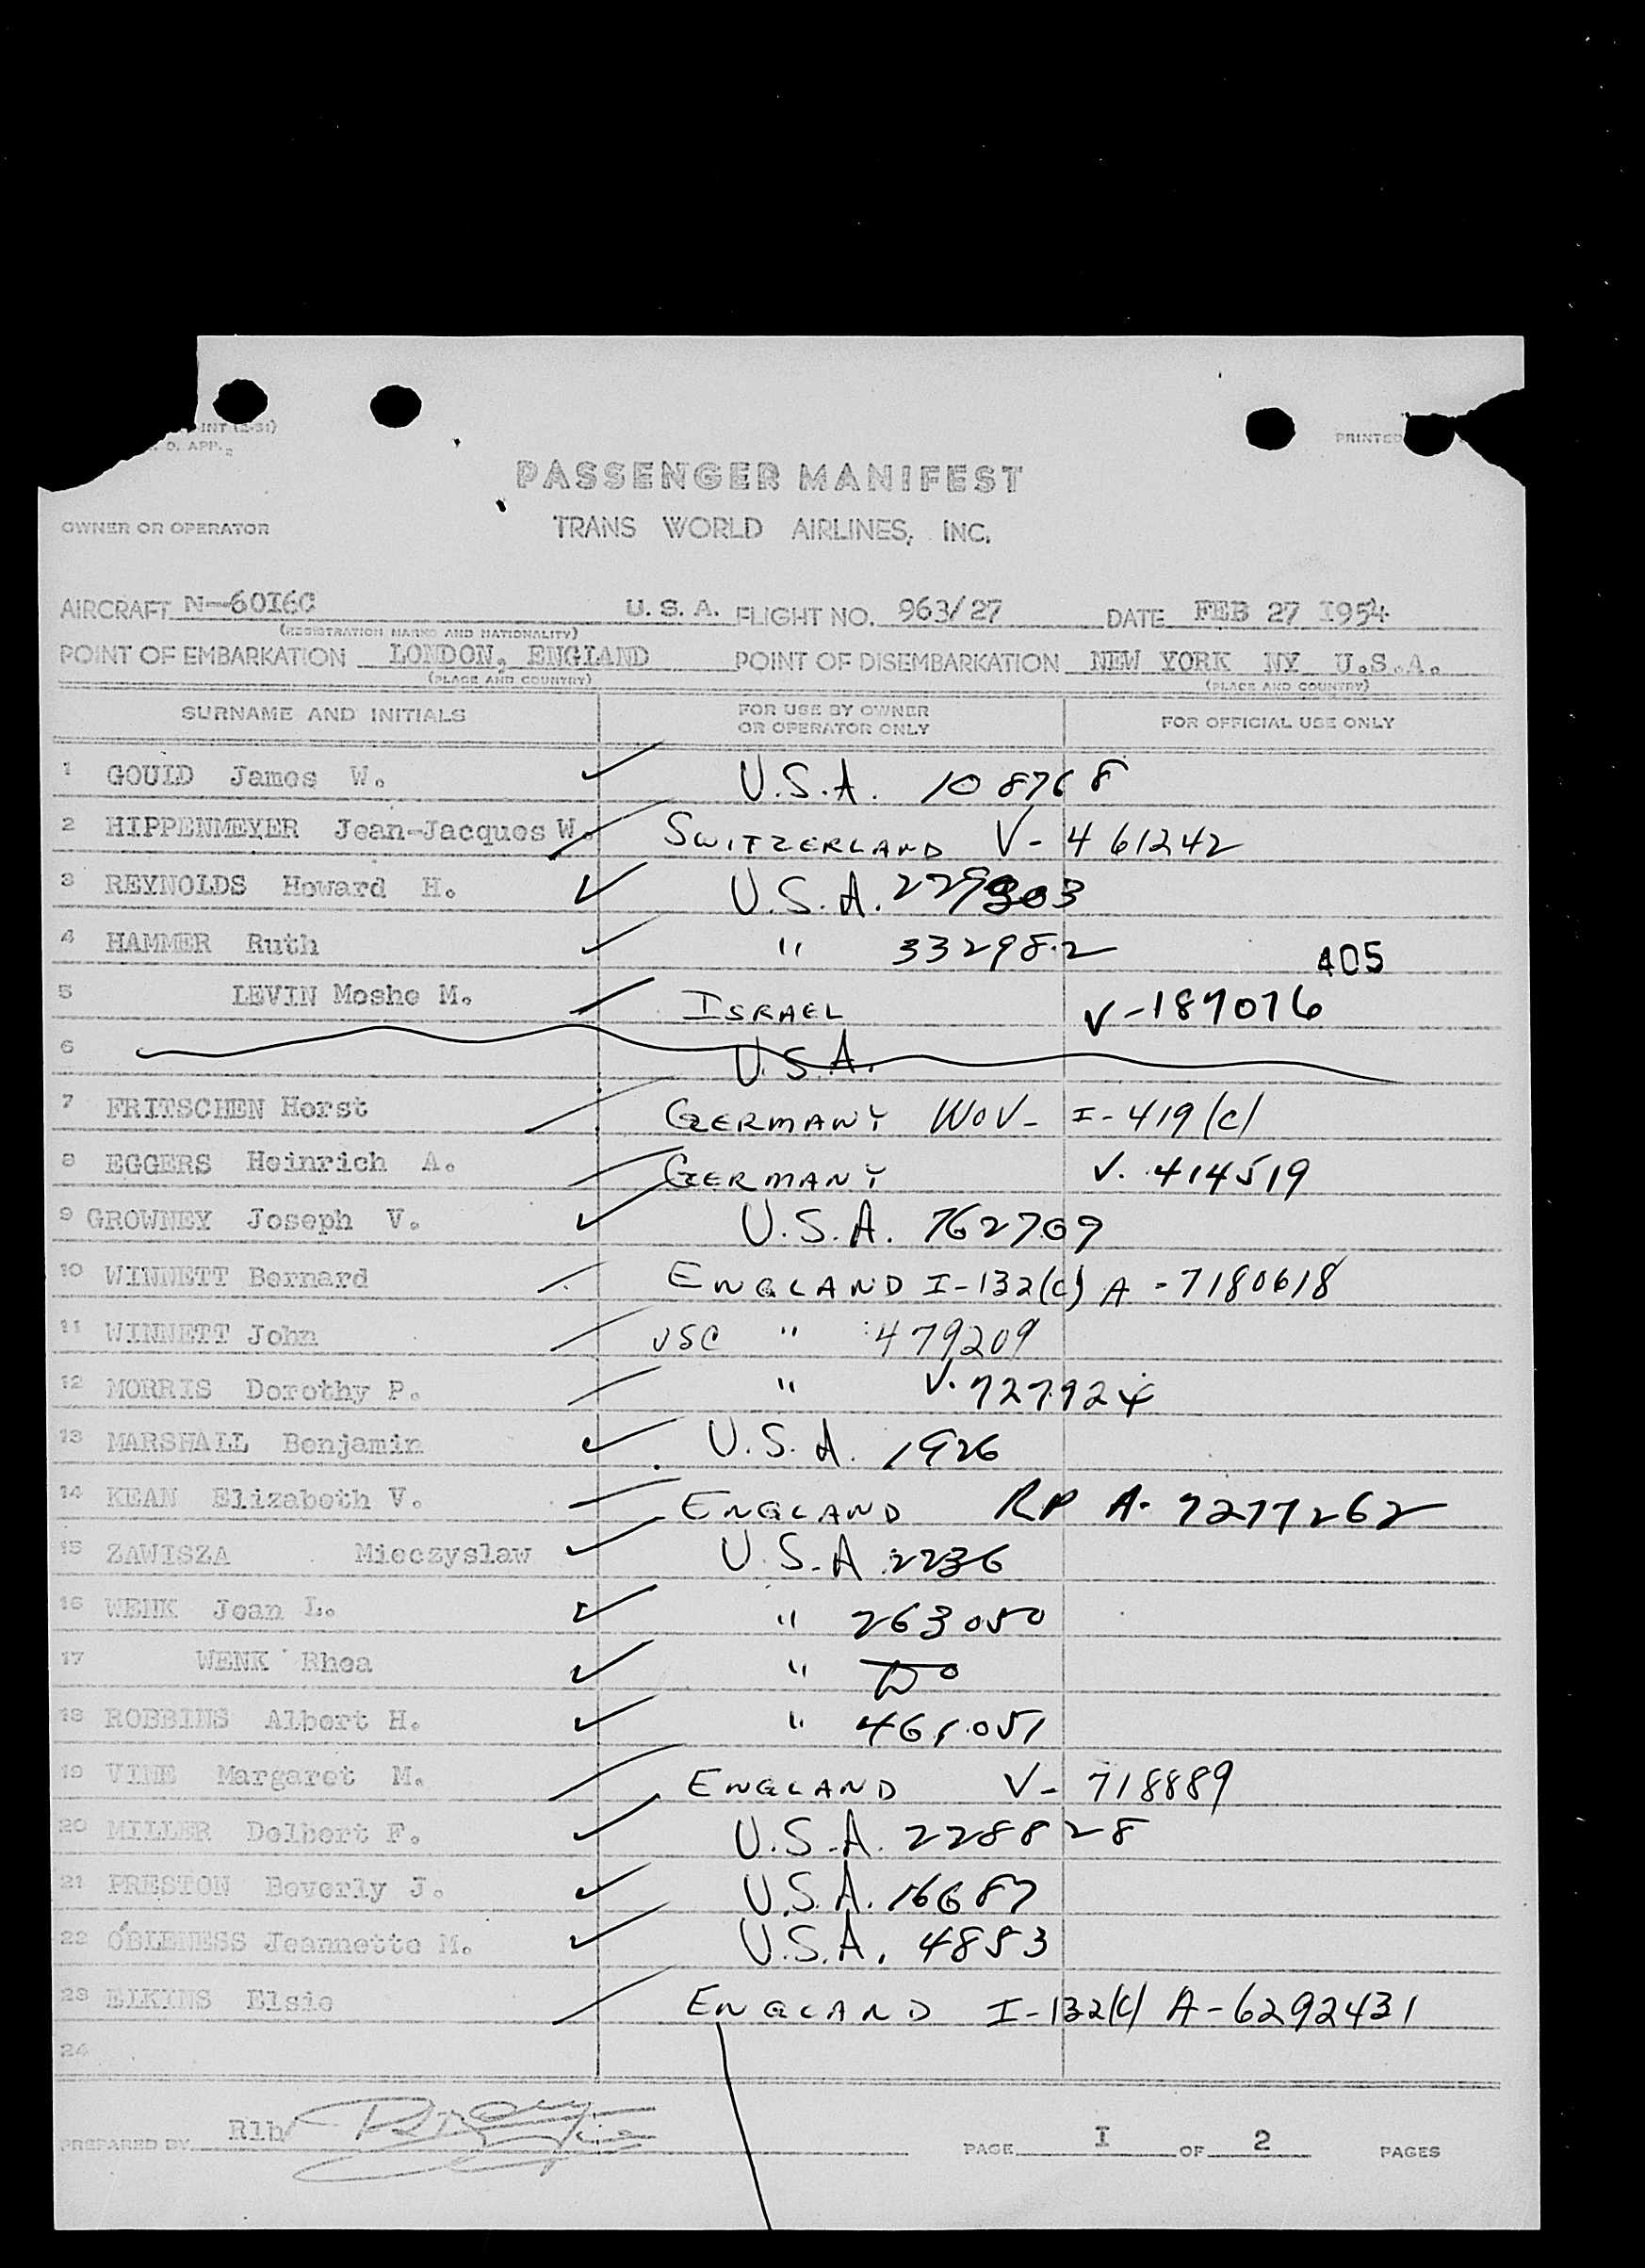 INT (2-51)
O. APP.
PRINTED
PASSENGER MANIFEST
OWNER OR OPERATOR TRANS WORLD AIRLINES, INC.
AIRCRAFT N-60I6C U.S.A. FLIGHT NO. 963/27 DATE FEB 27 I954
(REGISTRATION MARKS AND NATIONALITY)
POINT OF EMBARKATION LONDON, ENGLAND POINT OF DISEMBARKATION NEW YORK NY U.S.A.
(PLACE AND COUNTRY) (PLACE AND COUNTRY)
SURNAME AND INITIALS FOR USE BY OWNER OR OPERATOR ONLY FOR OFFICIAL USE ONLY
1 GOULD James W. U.S.A. 108768
2 HIPPENMEYER Jean-Jacques W. SWITZERLAND V-461242
3 REYNOLDS Howard H. U.S.A. 229303
4 HAMMER Ruth " 332982
405
5 LEVIN Moshe M. ISRAEL V-187076
6 U.S.A.
7 FRITSCHEN Horst GERMANY WOV- I-419(c)
8 EGGERS Heinrich A. GERMANY V. 414519
9 GROWNEY Joseph V. U.S.A. 762709
10 WINNETT Bernard ENGLAND I-132(c) A-7180618
11 WINNETT John USC " 479209
12 MORRIS Dorothy P. " V. 727924
13 MARSHALL Benjamin U.S.A. 1926
14 KEAN Elizabeth V. ENGLAND RP A-7277262
15 ZAWISZA Mieczyslaw U.S.A. 2236
16 WENK Jean L. " 263050
17 WENK Rhea " Do
18 ROBBINS Albert H. " 461051
19 VINE Margaret M. ENGLAND V-718889
20 MILLER Delbert F. U.S.A. 228828
21 PRESTON Beverly J. U.S.A. 16687
22 O'BLENESS Jeannette M. U.S.A. 4853
23 ELKINS Elsie ENGLAND I-132(c) A-6292431
24
PREPARED BY Rlb PAGE I OF 2 PAGES